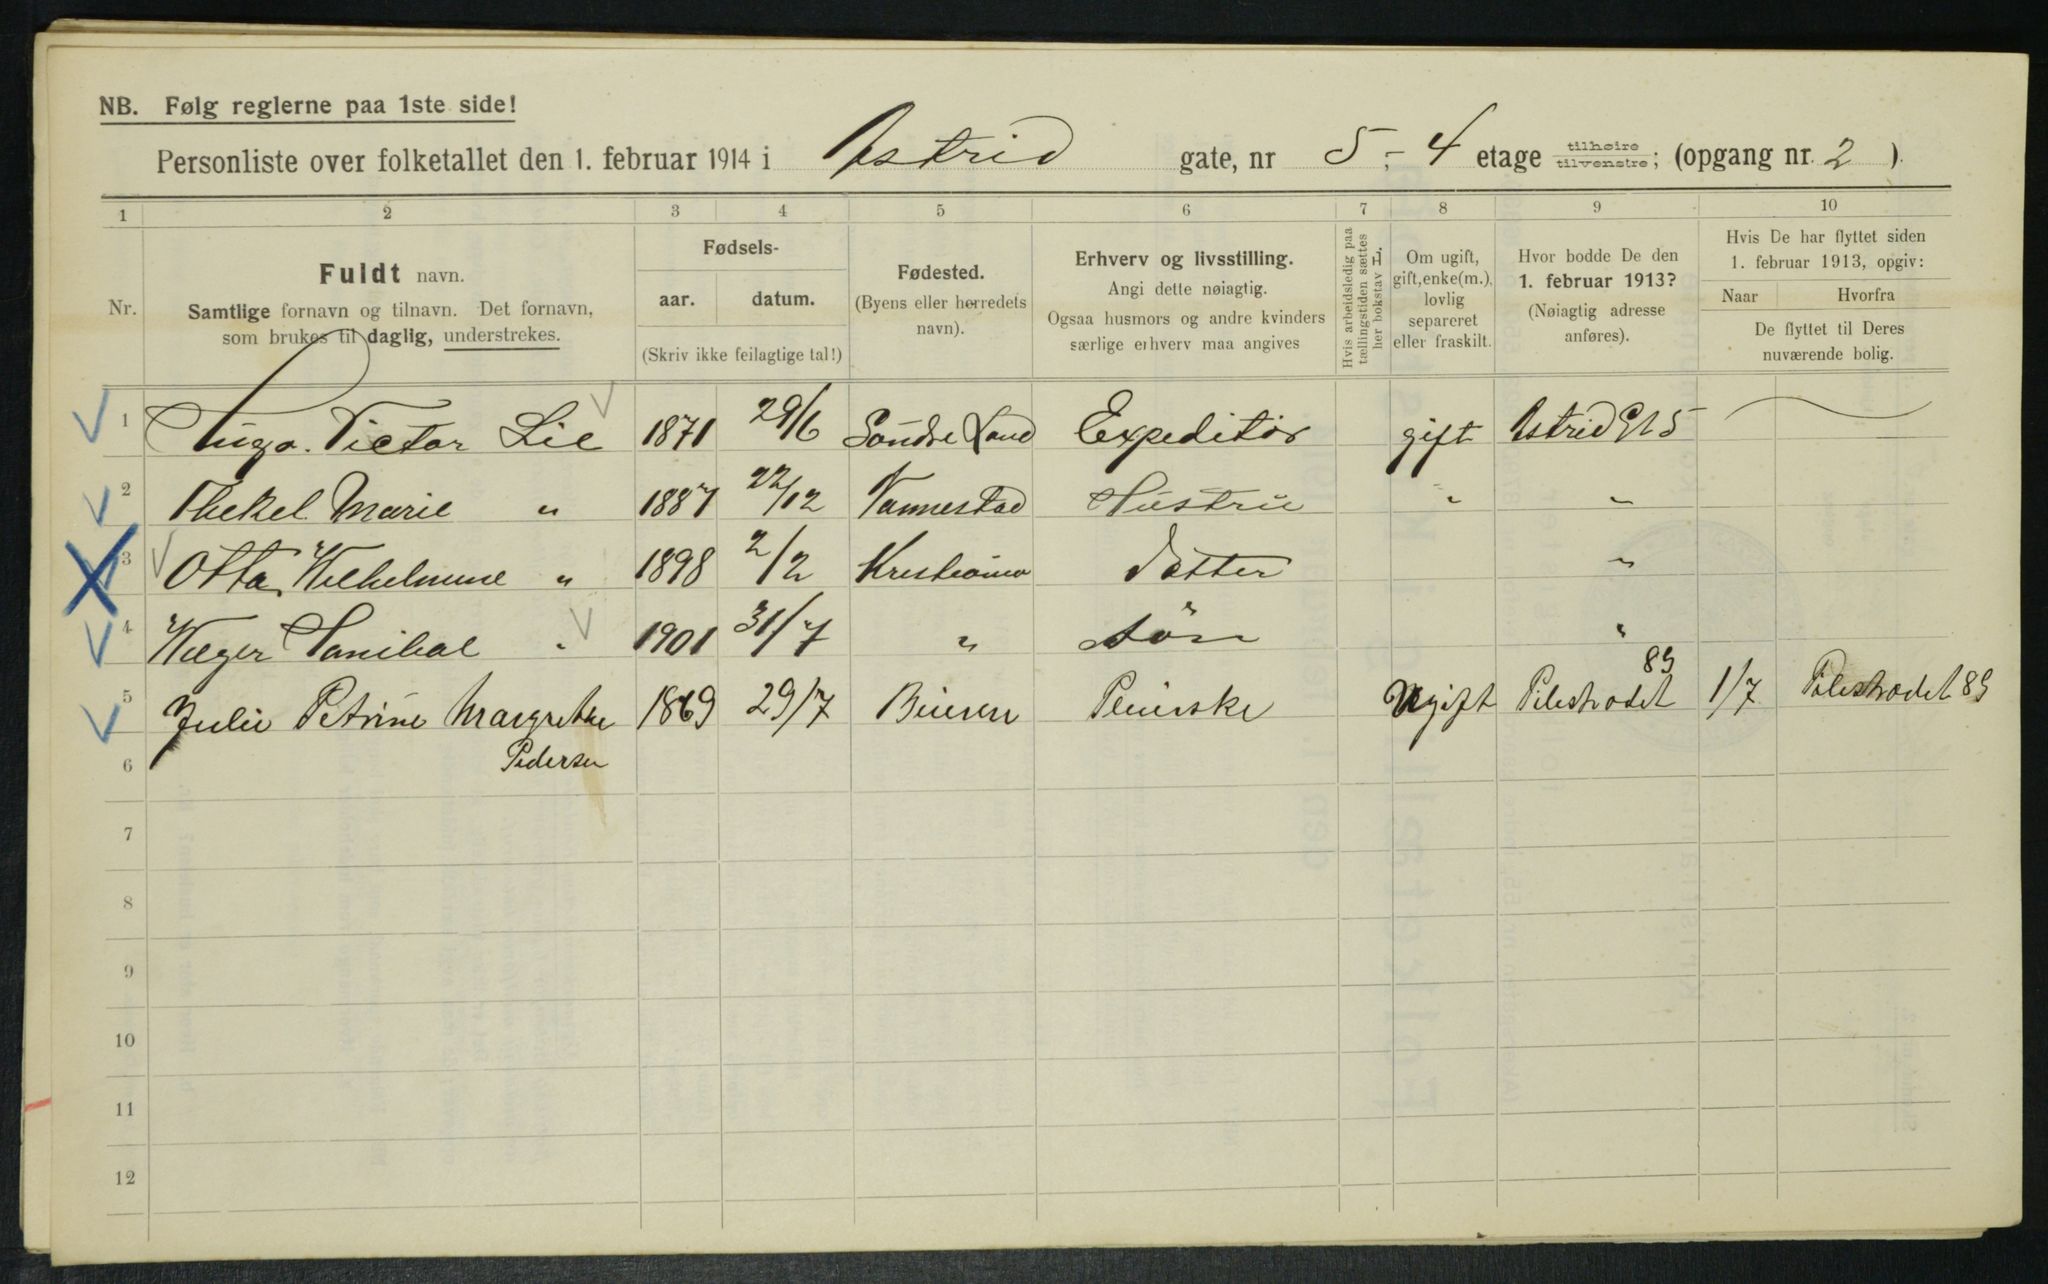 NB. Følg reglerne paa 1ste side!
Personliste over folketallet den 1. februar 1914 i Astrid gate, nr 5, - 4 etage tilhøire tilvenstre; (opgang nr. 2 ).
1 2 3 4 5 6 7 8 9 10
Nr.
Fuldt navn.
Samtlige fornavn og tilnavn. Det fornavn,
som brukes til daglig, understrekes.
Fødsels-
aar. datum.
(Skriv ikke feilagtige tal!)
Fødested.
(Byens eller herredets
navn).
Erhverv og livsstilling.
Angi dette nøiagtig.
Ogsaa husmors og andre kvinders
særlige erhverv maa angives
Hvis arbeidsledig paa
tællingstiden sættes
her bokstav L.
Om ugift,
gift, enke(m.),
lovlig
separeret
eller fraskilt.
Hvor bodde De den
1. februar 1913?
(Nøiagtig adresse
anføres).
Hvis De har flyttet siden
1. februar 1913, opgiv:
Naar Hvorfra
De flyttet til Deres
nuværende bolig.
1 Hugo. Victor Lie 1871 29/6 Söndre Land Expeditör gift Astrid Gt 5
2 Thekel Marie " 1887 22/12 Nannestad Hustru " "
3 Otta Wilhelmine " 1898 2/2 Kristiania datter "
4 Holger Hanibal " 1901 31/7 " sön "
5 Julie Petrine Margrethe 1869 29/7 Ugift Pilestrædet 89 1/7 Pilestrædet 89
Pedersen
6
7
8
9
10
11
12